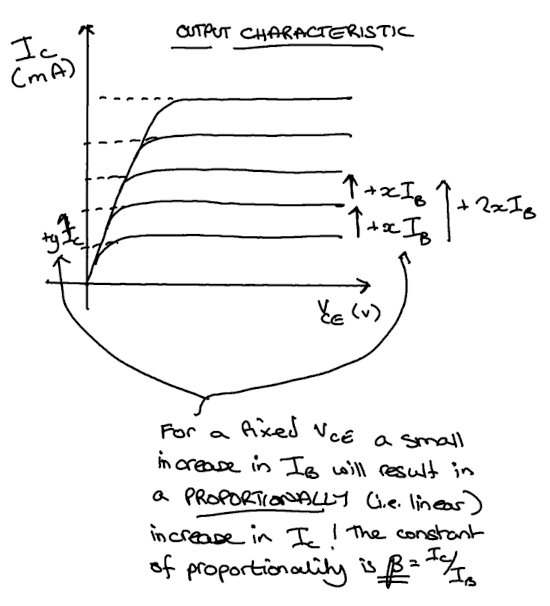 OUTPUT CHARACTERISTIC
I_C
(mA)
↑ +xI_B
↑ +xI_B
↑ +2xI_B
+yI_C
V_CE (V)
For a fixed V_CE a small
increase in I_B will result in
a PROPORTIONALLY (i.e. linear)
increase in I_C! The constant
of proportionality is β = I_C/I_B